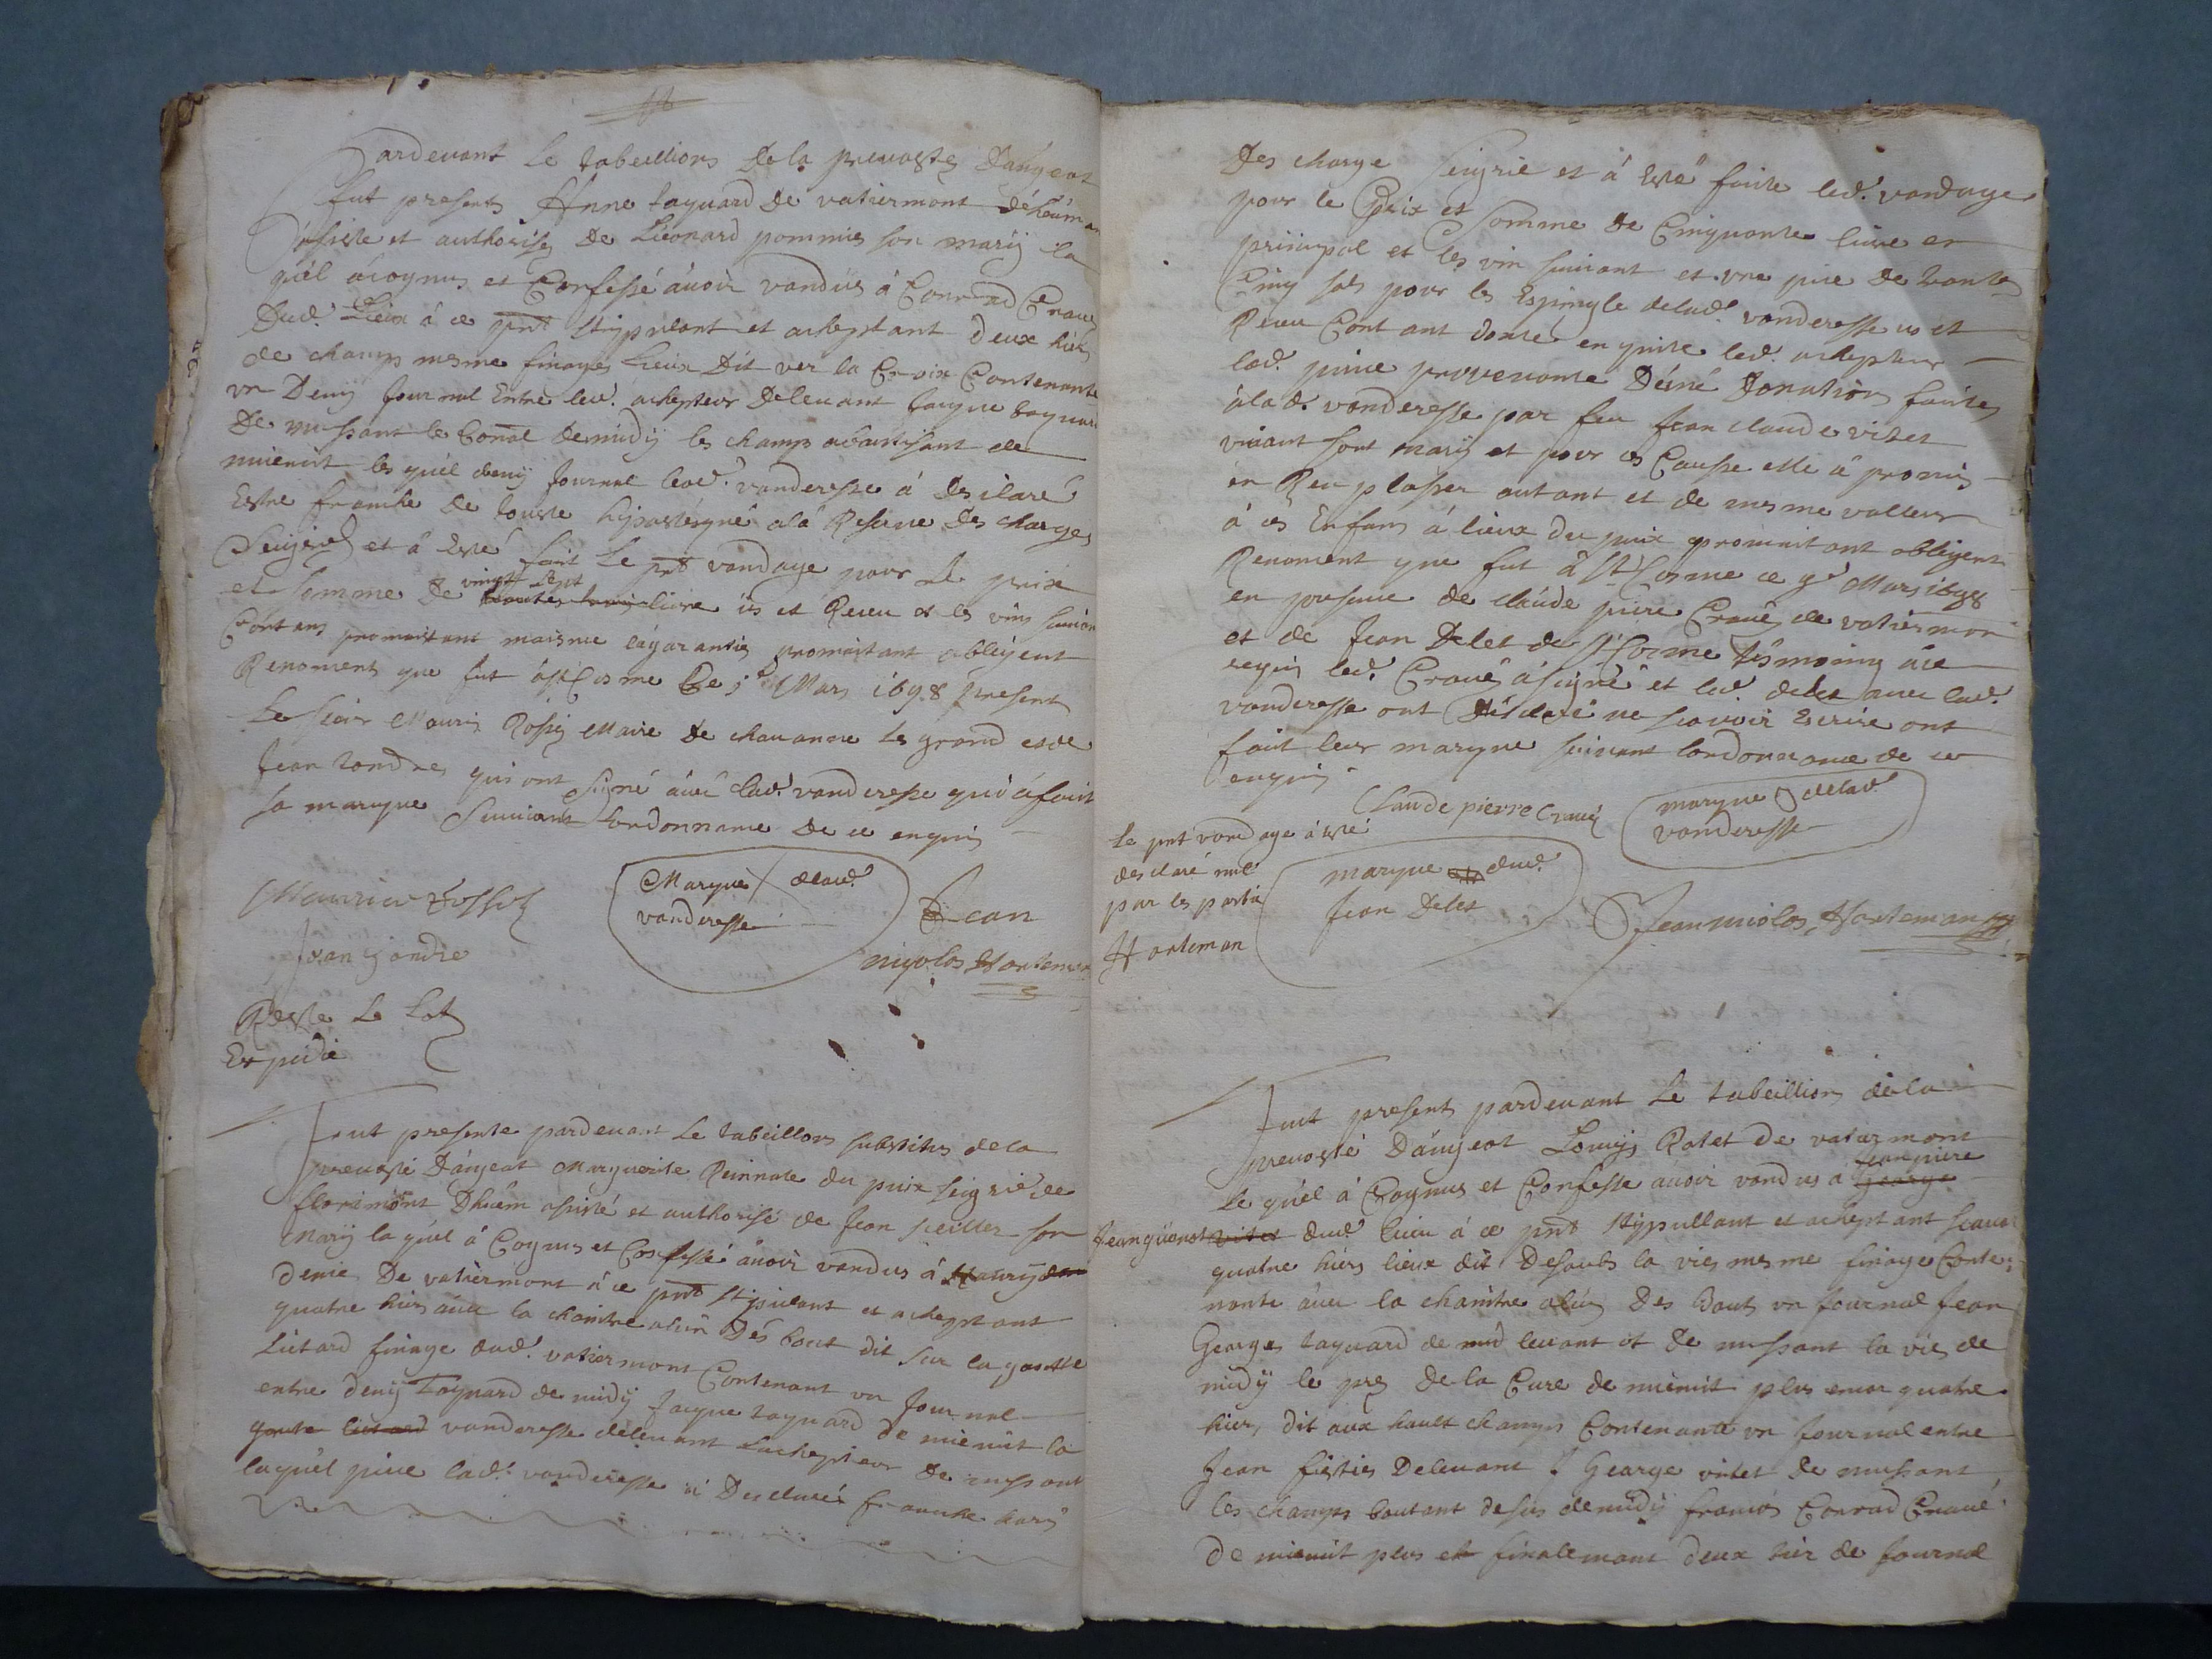 Pardeuant Le tabeillions De la preuostes Dangeot
fut presents Anne taquard De vatiermont
assiste et authorisés De Léonard pommier son marij la
quél acognus et Confessé áuoir vandus á Conrad Craue
Dud. Lieux á ce pnt stippulant et acheptant deux hiers
de champs mesme finages Lieux Dit ver la Croix Contenante
vn Demij Journal Entre led. achepteur Deleuant Jacque taquard
De mussant le Conal demidij les champs aboutissant de
mienuit les quél demij Journal lad. vanderesse á Desclaré
Estre franche De toutte hijpotecque ala Reserue Des charges
et á Esté fait Le pnt vandage pour Le prix
et somme De vingt sept livre et Receu et les vin suiuan
Contans promettant maisme lágarantis promaitant obligent
Renoment que fut ast Cosme Ce Mars 1698 present
Le sieur Mauris Rossez Maire De chauanne les grand et de
Jean Zondre qui ont signé áuec lad. vanderesse quj á fait
sa marque Suiuant Lordonnance De ce enquis
Maurice Rossez
Marque delad.
vanderesse
Jean
Jean Zondre
nicolas Hanteman
Reste Le Sol
Expédié
Fut presente pardeuant Le tabeillons substitus dela
preuosté Dángeot Marguerite Reinnate du puix seigrie de
florimont Dhuëm assisté et authorisé de Jean peiller son
Marij la quél á Cognus et Confessé áuoir vandus á
denie De vatiermont á ce pnt stipulant et acheptant
quatre hiers áuec la chaintre alun Dés bout dit sur la goutte
Liétard finage dud. vatiermont Contenant vn Journal
entre denij Taquard de midij Jacque taquard De mienuit la
goutte lietard vanderesse déleuant Lachepteur De mussant
laquél piece lad. vanderesse á Desclarés franche hors
Des charge seigrie et á Esté faite led. vandage
pour le prix et somme de Cinquante liure en
principal et les vin suiuant et vne piece de
Cinq sols pour les Espingle delad. vanderesse et
Receu Contant donte en quite led. achepteur
lad. piece prouenante Déune donation faites
álad. vanderesse par feu Jean claude vitet
viuant sont marij et pour ces Causse elle á promis
én Remplasser autant et de mesme valleur
á cés Enfans á lieux du puix promaitant obligent
Renoment que fut á st Cosme ce 9e Mars 1698
en presence de claude piere Craué de vatiermon
et de Jean Delet de st Cosme tésmoing áce
requis led. Craué á signé et led. delet auec lad.
vanderesse ont Désclaré ne scauoir Escrire ont
fait leur marque suivant lordonnance de ce
enquis
Claude pierre Craué
marque delad.
vanderesse
Le pnt vandage á esté
desclaré nul
par les partie
Hanteman
marque dud.
Jean Delet
Jean nicolas Hanteman
Fut present pardeuant Le tabeillion déla
preuosté Dángeot Louijs Rotet De vatiermont
Le quél á Cognus et Confesse auoir vandus á George
Jean piere
Jean guenot vitet dud. lieu á ce pnt stijpullant et acheptant scauoir
quatre hiers lieux dit Desoubs la vies mesme finage Conte-
nante áuec la chaintre alun Des bout vn Journal Jean
George taquard de mid leuant et de mussant la vie, de
midij le prez De la Cure de mienuit plus encor quatre
hiers dit aux hault champs Contenante vn Journal entre
Jean fietier Deleuant George vitet de mussant
les champs boutant desus demidij francois Conrad Craué
De mienuit plus et finalemant deux hier de Journal